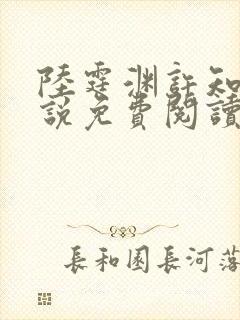 陸霆淵許知
說免費閱讀
長和園長河落